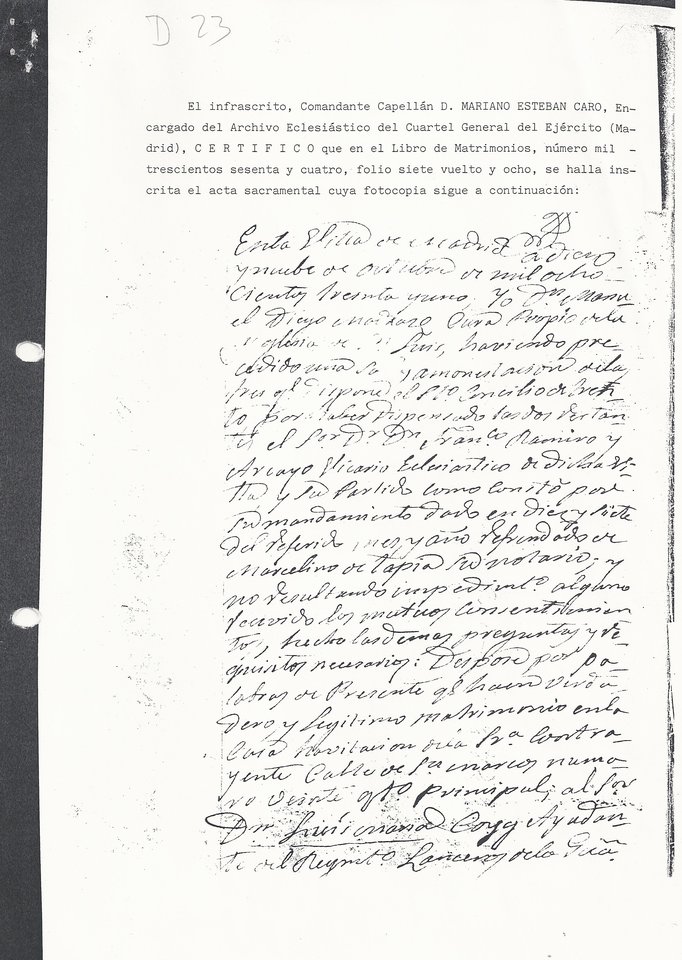 D 23
El infrascrito, Comandante Capellán D. MARIANO ESTEBAN CARO, En-
cargado del Archivo Eclesiástico del Cuartel General del Ejército (Ma-
drid), C E R T I F I C O que en el Libro de Matrimonios, número mil -
trescientos sesenta y cuatro, folio siete vuelto y ocho, se halla ins-
crita el acta sacramental cuya fotocopia sigue a continuación:
En la Villa de Madrid a diez
y nuebe de octubre de mil ocho
Cientos treinta y uno, Yo Dn. Manu
el Diego Madrazo Cura Propio de la
Iglesia de Sn. Luis, haviendo pre
cedido una sola amonestacion de las
tres qe. dispone el Sto. Concilio de Tren
to por haber dispensado las dos restan
tes el Sor. Dr. Dn. Franco. Ramiro y
Arcayo Vicario Eclesiastico de dicha Vi
lla y su Partido como constó por
su mandamiento dado en diez y siete
del referido mes y año refrendado de
Marcelino de Tapia su notario; y
no resultando impedimto. alguno
recivido los mutuos consentimien
tos, hecho las demas preguntas y re
quisitos necesarios: Desposé por pa
labras de Presente qe. hacen verda
dero y legitimo matrimonio en la
Casa havitacion de la Sra. Contra
yente Calle de Sn. Marcos nume
ro veinte qto. principal; al Sor.
Dn. Luis Maria Coig Ayudan
te del Regimto. Lanceros de la Guaa.